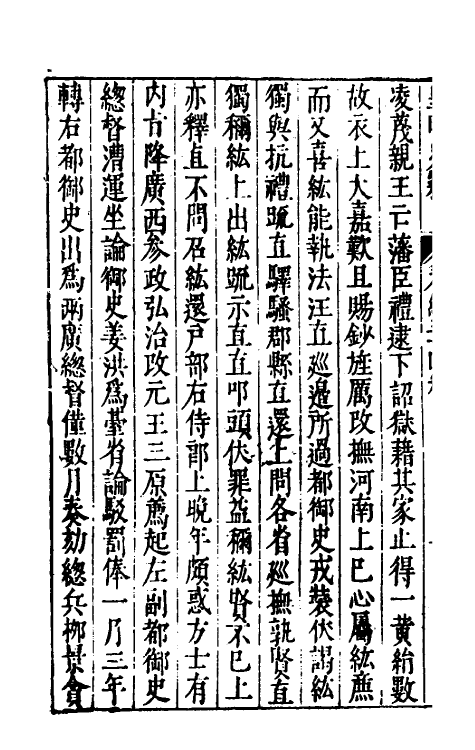 凌茂親王亡藩臣禮逮下詔獄藉其家止得一黄紬數
故衣上大嘉歎且賜鈔旌厲改撫河南上已心屬紘廉
而又喜紘能執法汪直廵邉所過都御史戎裝伏謁紘
獨與抗禮䟽直驛騷郡縣直還上問各省廵撫孰賢直
獨稱紘上出紘䟽示直直叩頭伏罪益稱紘賢不已上
亦釋直不問召紘還戸部右侍郎上晚年頗惑方士有
内㫖降廣西參政弘治改元王三原薦起左副都御史
總督漕運坐論御史姜洪爲臺省論駁罰俸一月三年
轉右都御史出爲兩廣總督僅數月奏劾總兵栁景貪